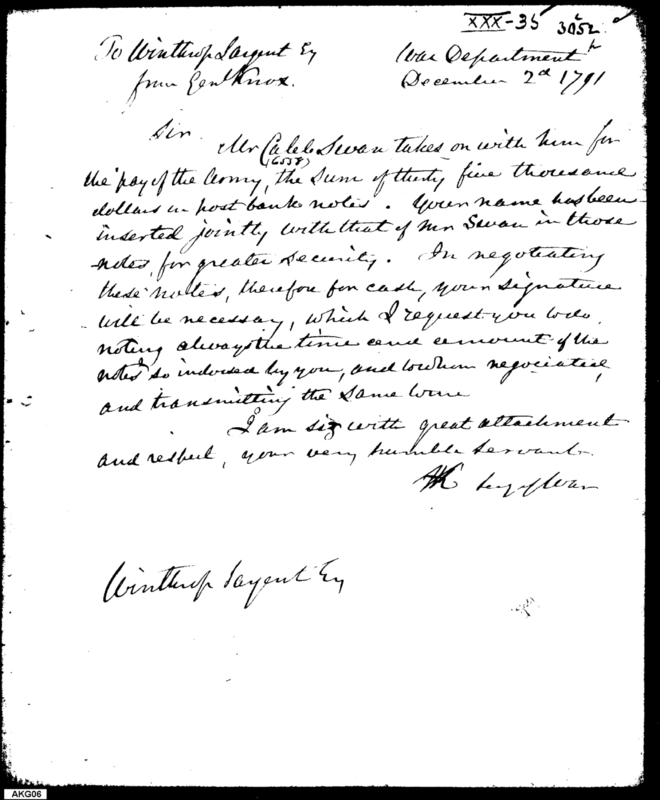 XXX-35 3052
To Winthrop Sargent Eq War Department
from Genl Knox. December 2d 1791
Sir
Mr Caleb Swan takes on with him for
the pay of the Army, the Sum of thirty five thousand
dollars in post bank notes. Your name has been
inserted jointly with that of Mr Swan in those
notes, for greater Security. In negotiating
these notes, therefore for cash, your signature
will be necessary, which I request you to do,
noting always the time and amount of the
notes so indorsed by you, and to whom negociated,
and transmitting the Same to me
I am sir with great attachment
and respect, your very humble Servant.
HK Secy of War
Winthrop Sargent Eq
AKG06